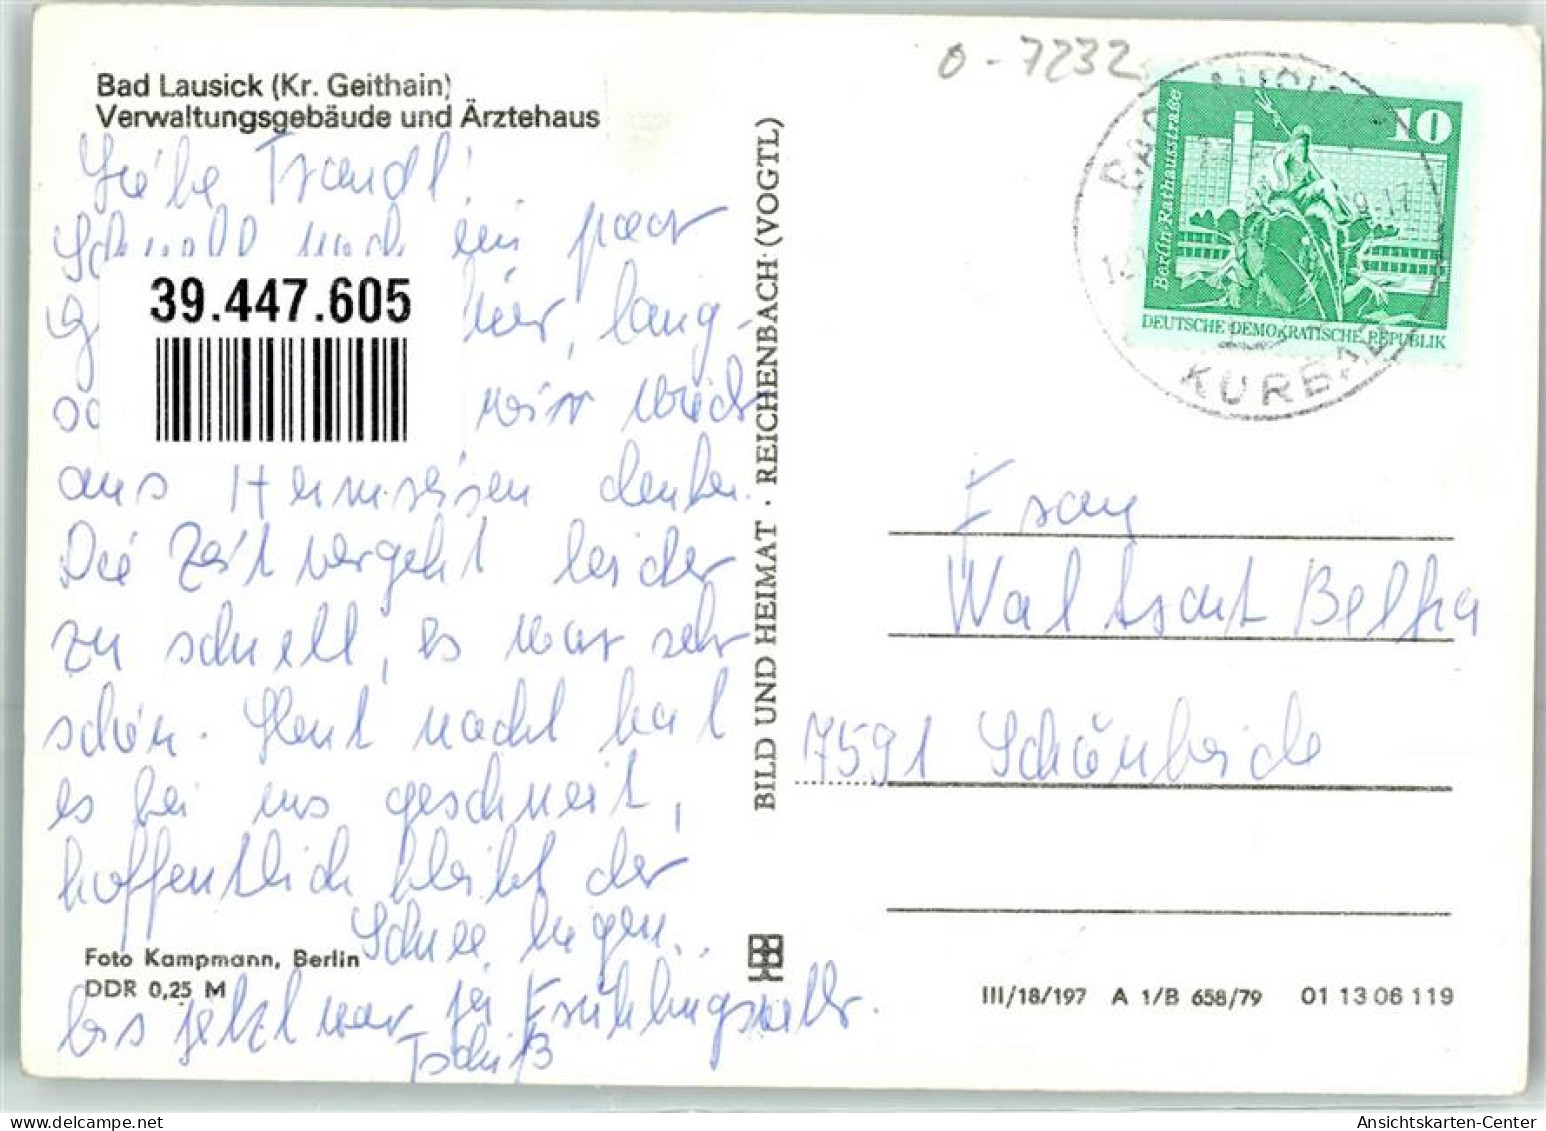 o - 7232
Bad Lausick (Kr. Geithain)
Verwaltungsgebäude und Ärztehaus
Liebe Traudl!
Schnell noch ein paar
39.447.605
hier, lang-
wir wieder
ans denken.
Die Zeit vergeht leider
zu schnell, es war sehr
schön. Heut nacht hat
es bei uns geschneit,
hoffentlich bleibt der
Schnee liegen,
bis jetzt war ja Frühlingswetter.
Tschüß
Foto Kampmann, Berlin
DDR 0,25 M
BILD UND HEIMAT · REICHENBACH (VOGTL)
10
Berlin, Rathausstraße
DEUTSCHE DEMOKRATISCHE REPUBLIK
KURBAD
Frau
Waltraut
7591 Schönheide
III/18/197 A 1/B 658/79 01 13 06 119
Ansichtskarten-Center